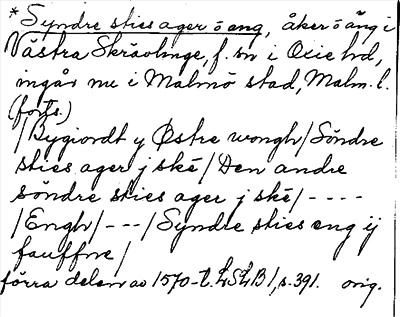 *Syndre sties ager ö eng, åker ö äng i
Västra Skrävlinge, f. sn i Oxie hd,
ingår nu i Malmö stad, Malm. l.
(forts.)
/Bygiordt y Østre wongh/Söndre
sties ager j ské/Den andre
söndre sties ager j ské/----
/Engh/---/Syndre sties eng ij
fauffne/
förra delen av 1570-t. LSLB1, s. 391. orig.